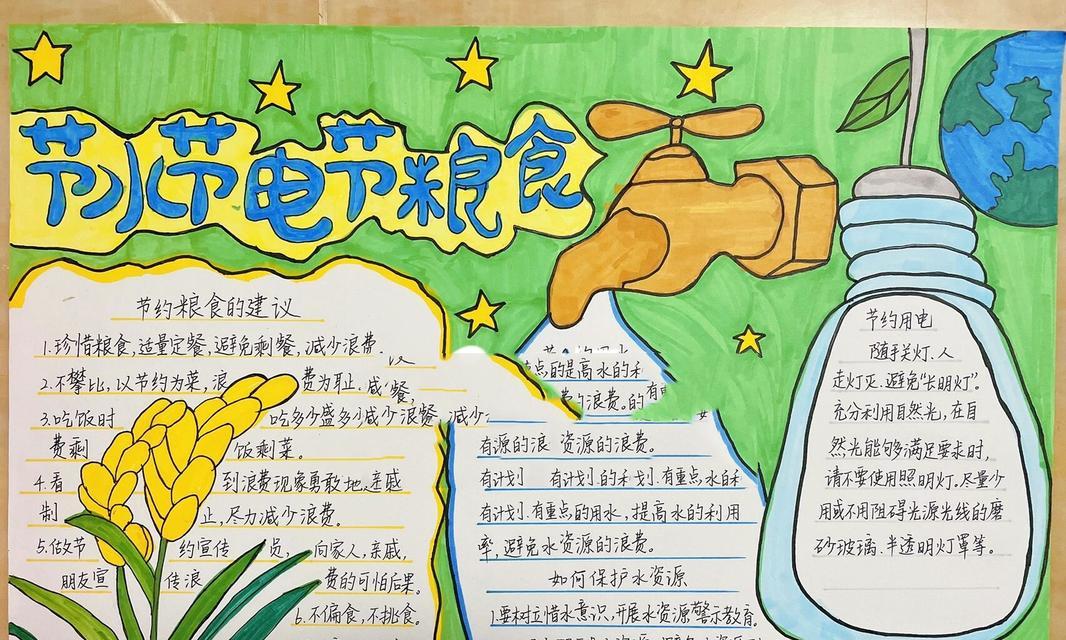 节水节电节粮食
节约粮食的建议
1.珍惜粮食,适量定餐,避免剩餐,减少浪费。
2.不攀比,以节约为荣,浪费为耻.
3.吃饭时 吃多少盛多少减少浪餐 减少
费剩 饭剩菜。
4.看 到浪费现象勇敢地
制 止,尽力减少浪费。
5.做节 约宣传 员, 向家人,亲戚,
朋友宣 传浪 费的可怕后果。
6.不偏食,不挑食。
点的是高水的利
的浪费。的有
有源的浪 资源的浪费。
有计划 有计划.的 划.有重点水
有计划.有重点的用水,提高水的利用
率,避免水资源的浪费。
如何保护水资源
1.要树立惜水意识,开展水资源警示教育。
节约用电
随手关灯.人
走灯灭.避免“长明灯”。
充分利用自然光,在自
然光能够满足要求时,
请不要使用照明灯.尽量少
用或不用阻碍光源光线的磨
砂玻璃.半透明灯罩等。